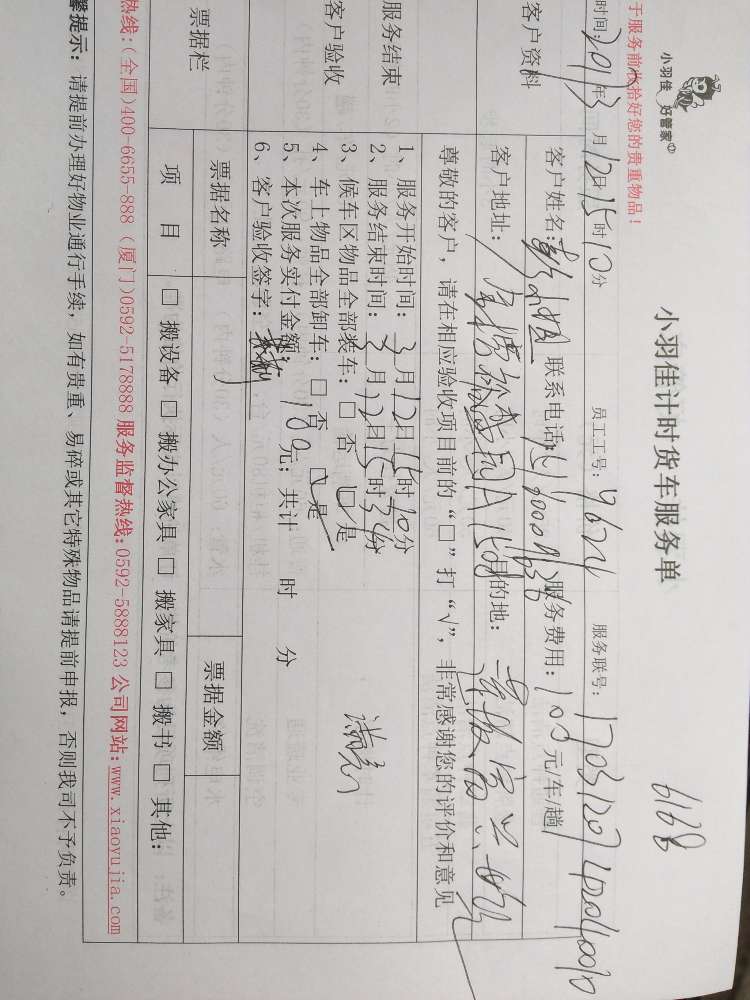 小羽佳 好管家
小羽佳计时货车服务单
6168
于服务前收拾好您的贵重物品！
时间：2017年3月12日15时10分 员工工号：7672 服务联号：
客户资料
客户姓名： 联系电话： 服务费用：100元/车/趟
客户地址： 目的地：
尊敬的客户，请在相应验收项目前的“□”打“√”，非常感谢您的评价和意见
服务结束
客户验收
1、服务开始时间：3月12日15时10分
2、服务结束时间：3月12日15时36分
3、候车区物品全部装车：□ 否 □ 是
4、车上物品全部卸车：□ 否 □ 是
5、本次服务实付金额：100元；共计 时 分
6、客户验收签字：
满意
票据栏
票据名称 票据金额
项 目 □ 搬设备 □ 搬办公家具 □ 搬家具 □ 搬书 □ 其他：
热线：(全国)400-6655-888 (厦门)0592-5178888 服务监督热线：0592-5888123 公司网站：www.xiaoyujia.com
馨提示：请提前办理好物业通行手续，如有贵重、易碎或其它特殊物品请提前申报，否则我司不予负责。